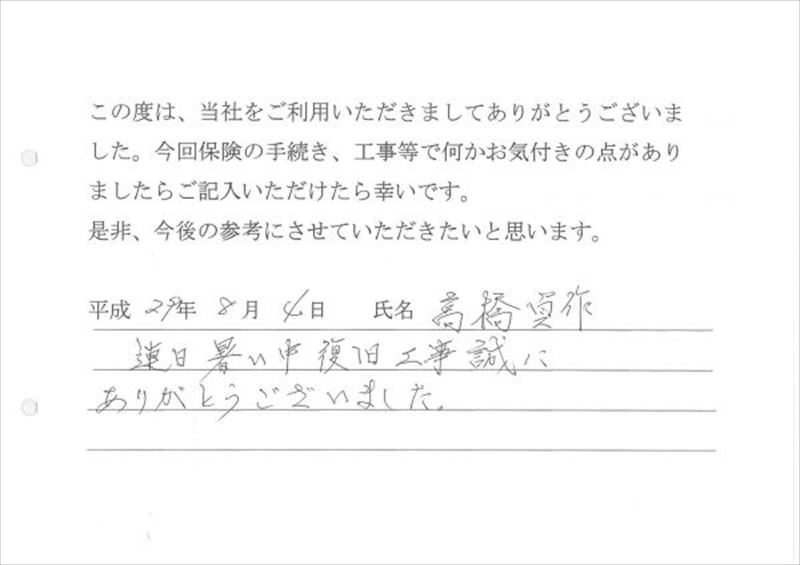 この度は、当社をご利用いただきましてありがとうございま
した。今回保険の手続き、工事等で何かお気付きの点があり
ましたらご記入いただけたら幸いです。
是非、今後の参考にさせていただきたいと思います。
平成 29年 8月 4日 氏名 高橋貞作
連日暑い中復旧工事誠に
ありがとうございました。